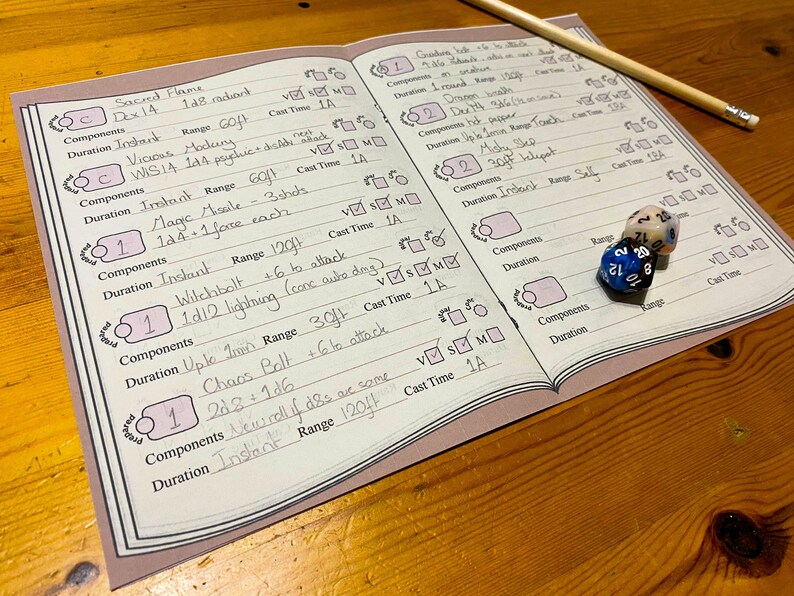 Sacred Flame
Prepared C Dex 14 1d8 radiant Ritual Conc
Components V S M
Duration Instant Range 60ft Cast Time 1A
Vicious Mockery
Prepared C WIS 14 1d4 psychic + disAdv next attack Ritual Conc
Components V S M
Duration Instant Range 60ft Cast Time 1A
Magic Missile - 3 shots
Prepared 1 1d4 + 1 force each Ritual Conc
Components V S M
Duration Instant Range 120ft Cast Time 1A
Witchbolt +6 to attack
Prepared 1 1d12 lightning (conc auto dmg) Ritual Conc
Components V S M
Duration Upto 1min Range 30ft Cast Time 1A
Chaos Bolt +6 to attack
Prepared 1 2d8 + 1d6 Ritual Conc
Components New roll if d8s are same V S M
Duration Instant Range 120ft Cast Time 1A
Guiding bolt +6 to attack
1 4d6 attack
Components on creature V S M
Duration 1 round Range 120ft Cast Time 1A
Dragon breath
Prepared 2 Dex 14 3d6
Components hot pepper V S M
Duration Upto 1min Range Touch Cast Time 1BA
Misty Step
Prepared 2 30ft teleport Ritual Conc
Components V S M
Duration Instant Range Self Cast Time 1BA
Prepared Ritual Conc
Components V S M
Duration Range
Prepared Ritual Conc
Components V S M
Duration Range Cast Time
2 20 8 12 10
2 20 12 10 8